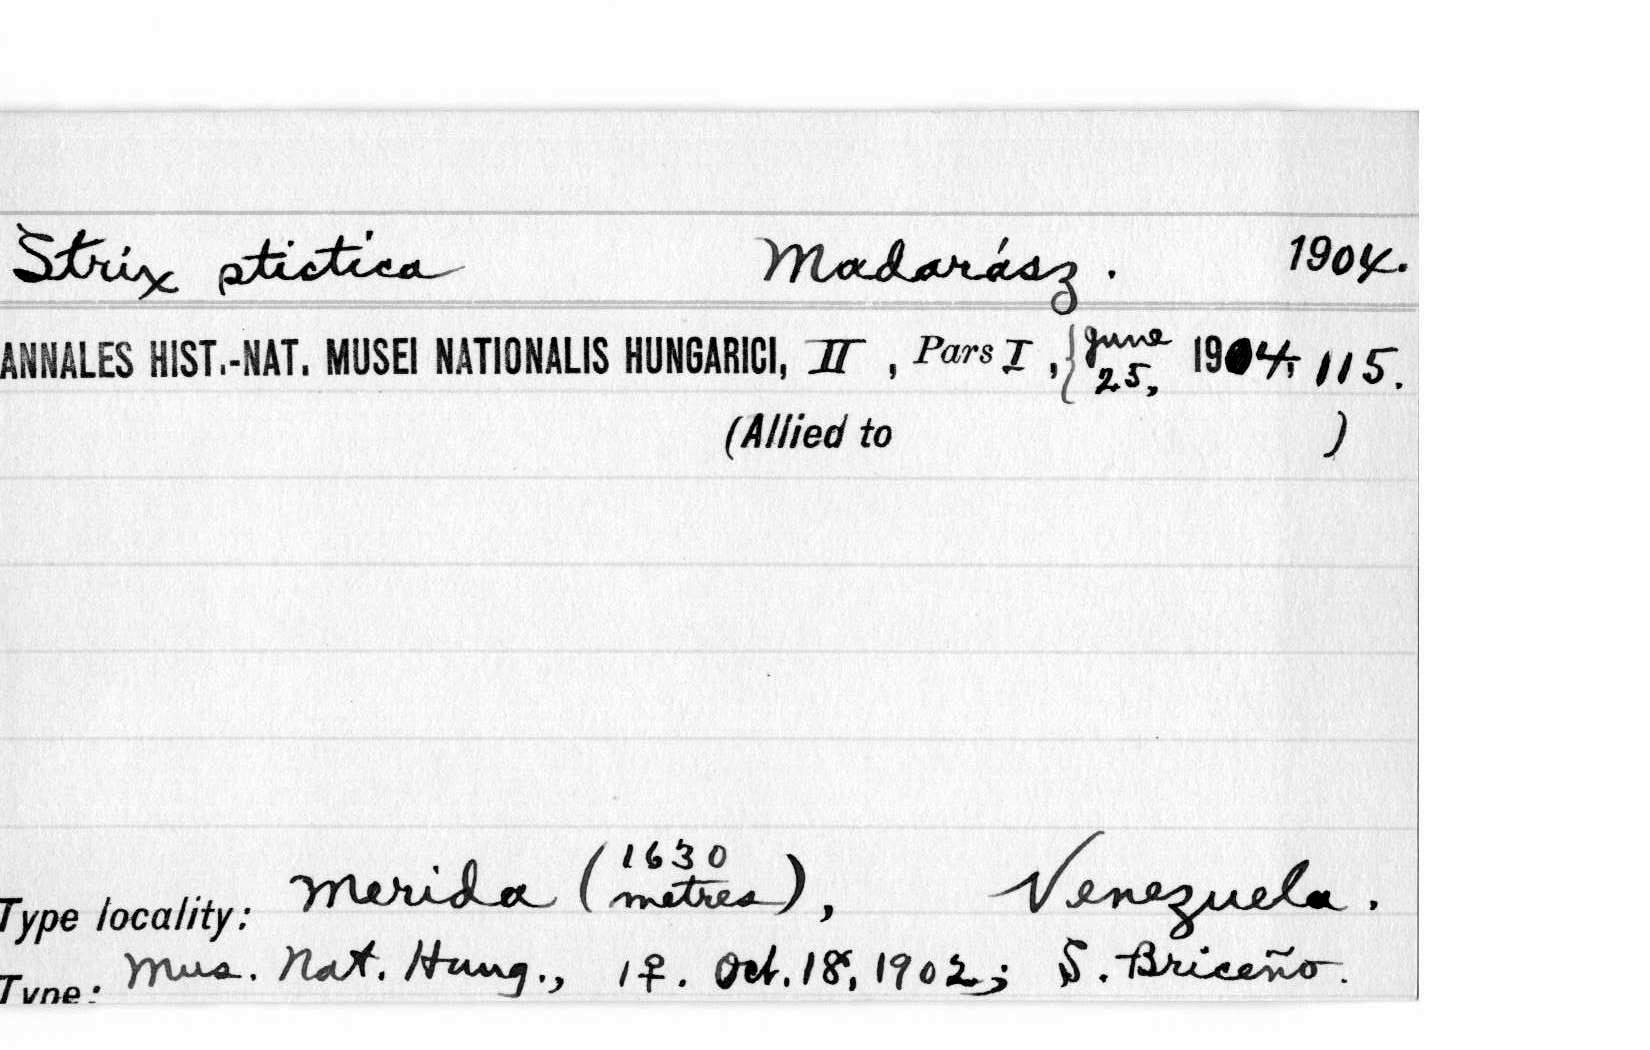 Strix stictica Madarász. 1904.
ANNALES HIST.-NAT. MUSEI NATIONALIS HUNGARICI, II, Pars I, {June 25, 1904, 115.
(Allied to )
Type locality: Merida (1630 metres), Venezuela.
Type: Mus. Nat. Hung., 1♀. Oct. 18, 1902; S. Briceño.